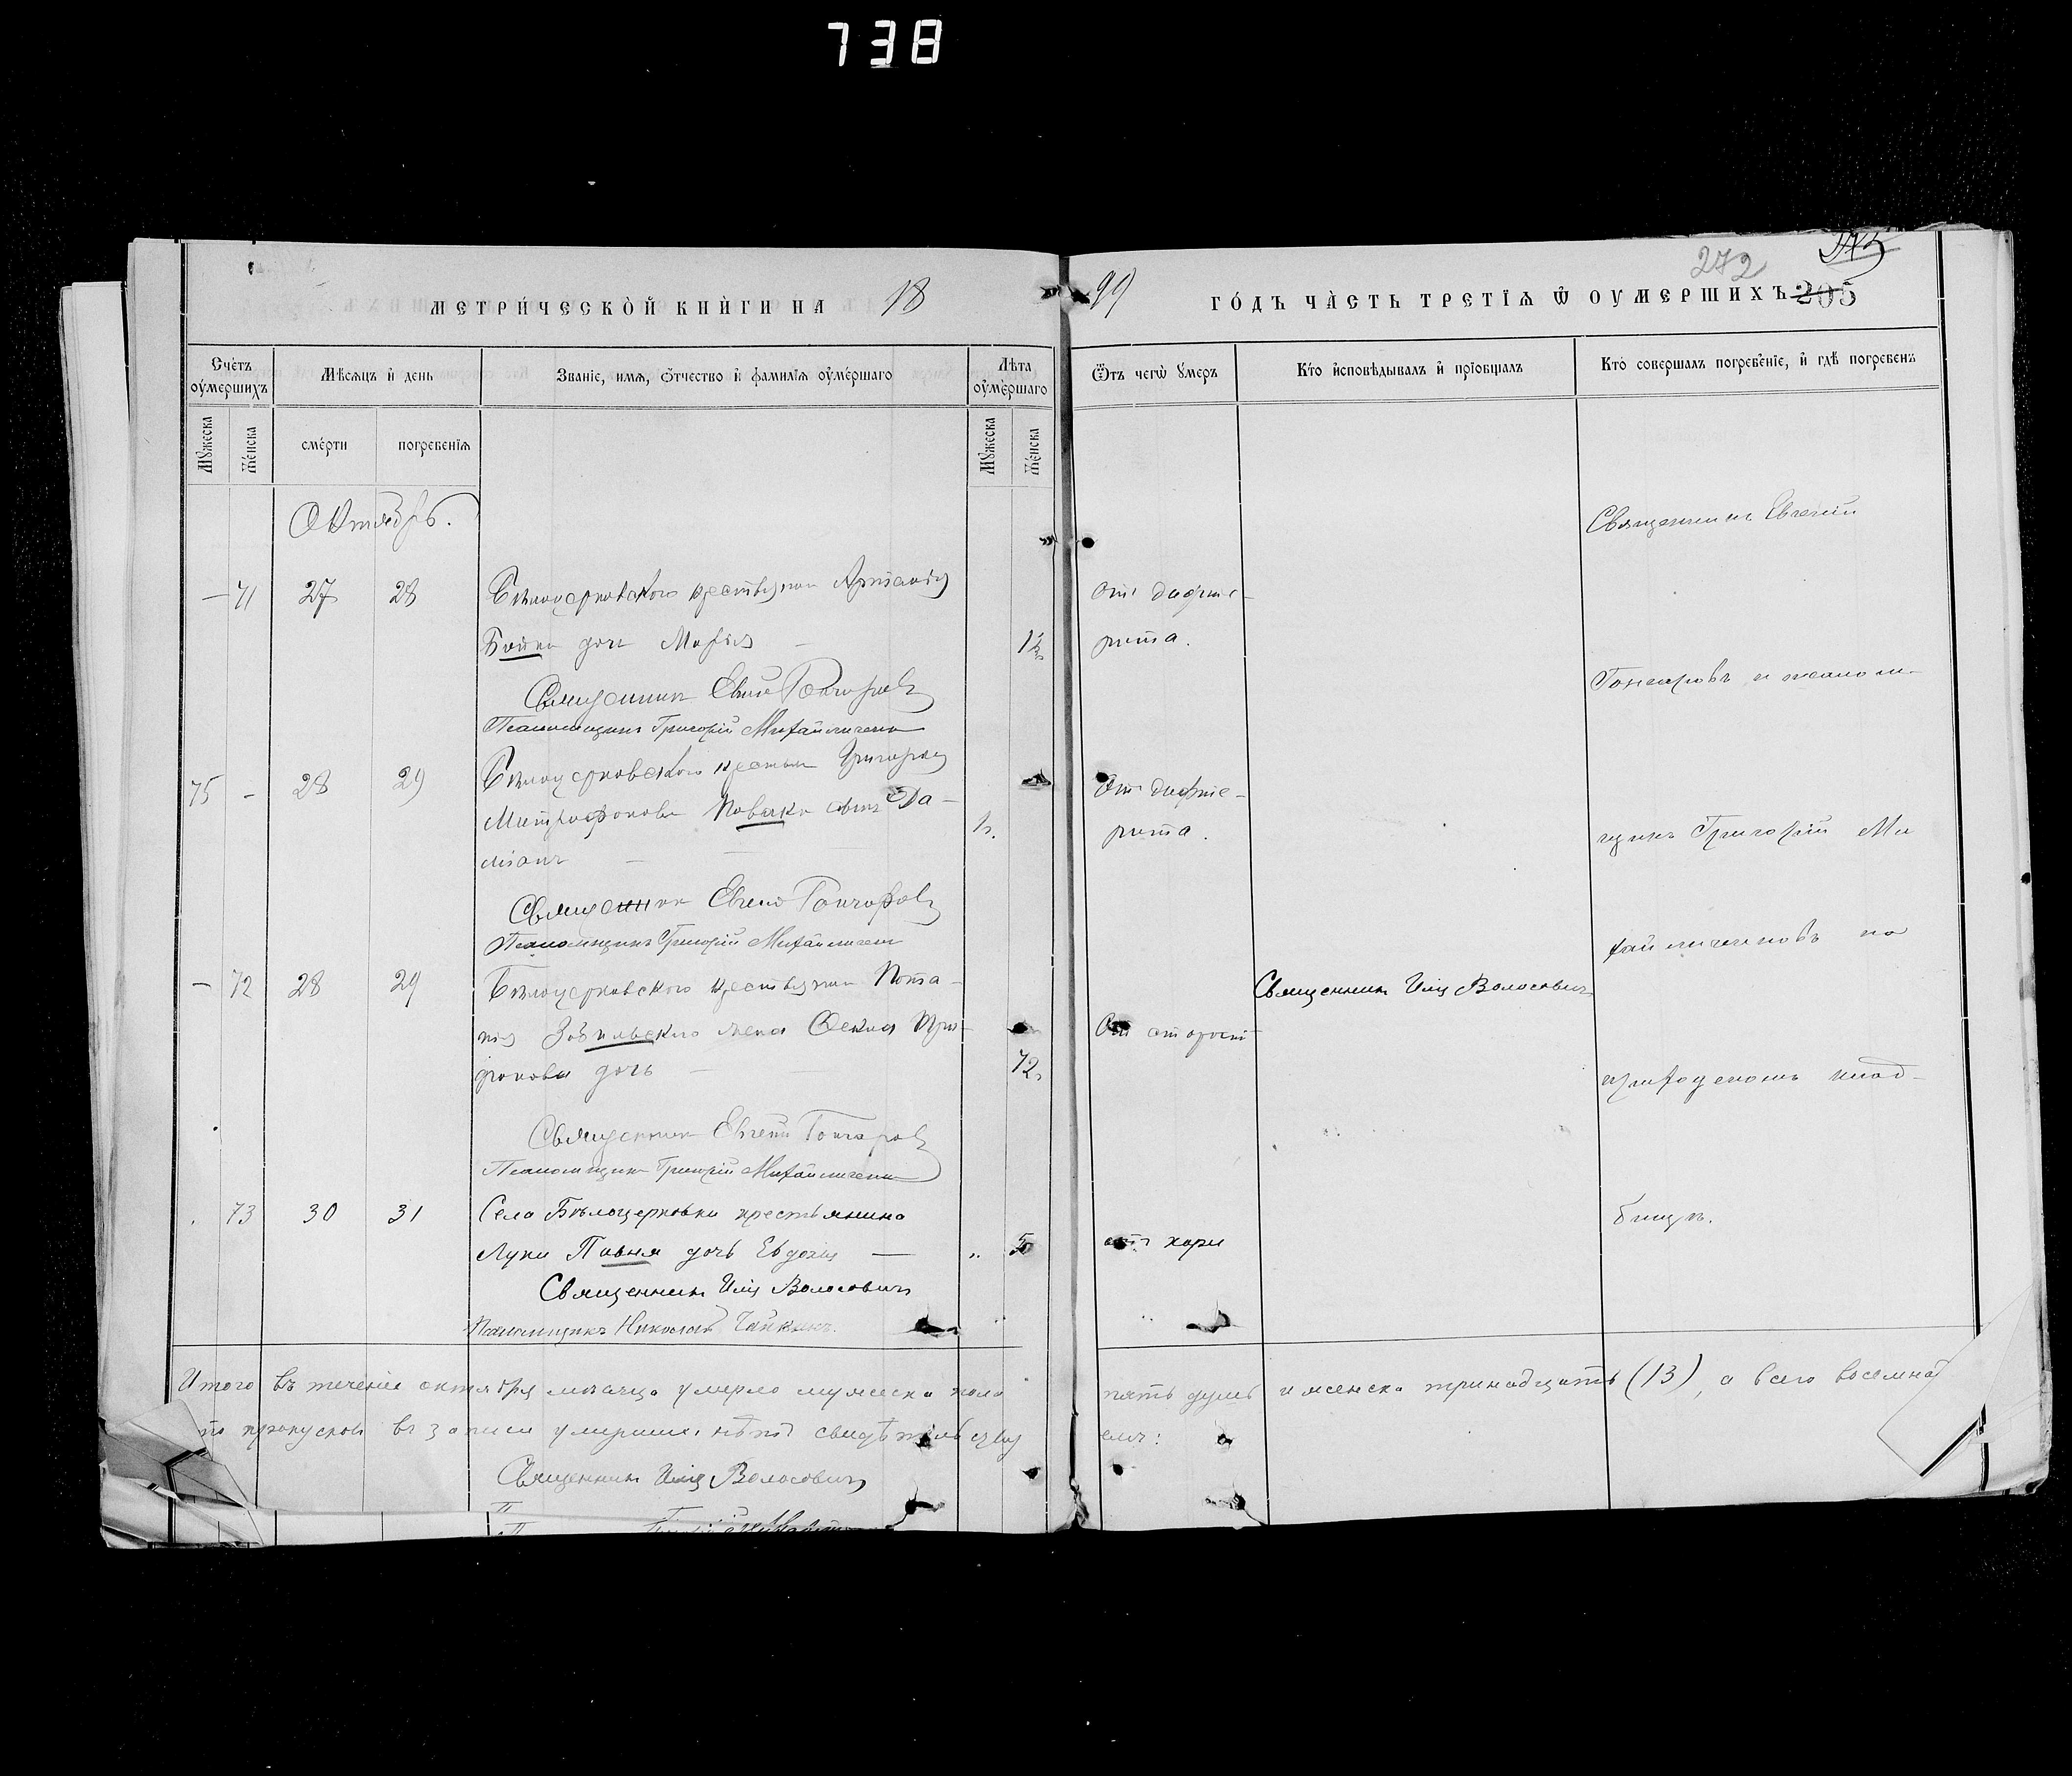 738
272
205
МЕТРИ́ЧЕСКО́Й КНИ́ГИ НА 18
99 ГО́ДЪ ЧА́СТЬ ТРЕТІѦ Ѿ ОУМЕРШИХЪ
Счетъ оумершихъ
Мѣсяцъ и день
Званіе, имя, отчество и фамилія оумершаго
Лѣта оумершаго
Ѿтъ чегѡ умеръ
Кто исповѣдывалъ и пріобщалъ
Кто совершалъ погребеніе, и гдѣ погребенъ
Мужеска
Женска
смерти
погребенія
Мужеска
Женска
Октябрь.
Священникъ Евгеній
— 71 27 28 Бѣлоцерковского крестьянина
отъ дифте-
Бойка дочь Марія — 1½
рита.
Священникъ Евгеній Гончаровъ
Гончаровъ и псалом-
Псаломщикъ Григорій Михайличенко
75 - 28 29 Бѣлоцерковского крестьян Григорія
Отъ дифте-
Митрофанова Новака сынъ Да- 1
рита.
щикъ Григорій Ми
міанъ —
Священник Евгеній Гончаровъ
Псаломщикъ Григорій Михайличенко
хайличенковъ на
— 72 28 29 Бѣлоцерковского крестьянина Пота-
Священникъ Илія Волосовичъ
пія жена Трі-
Отъ старости
фонова дочь — 72
приходскомъ клад-
Священник Евгеній Гончаровъ
Псаломщикъ Григорій Михайличенко
73 30 31 Села Бѣлоцерковки крестьянина
бищѣ.
Луки Павня дочь Евдокія — „ 5
отъ кори
Священникъ Илія Волосовичъ
Псаломщикъ Николай
Итого въ теченіе октября мѣсяца умерло мужеска пола
пять душъ и женска тринадцать (13), а всего восемнад
что пропусковъ въ записи умершихъ нѣтъ свидѣтельству
емъ:
Священникъ Илія Волосовичъ